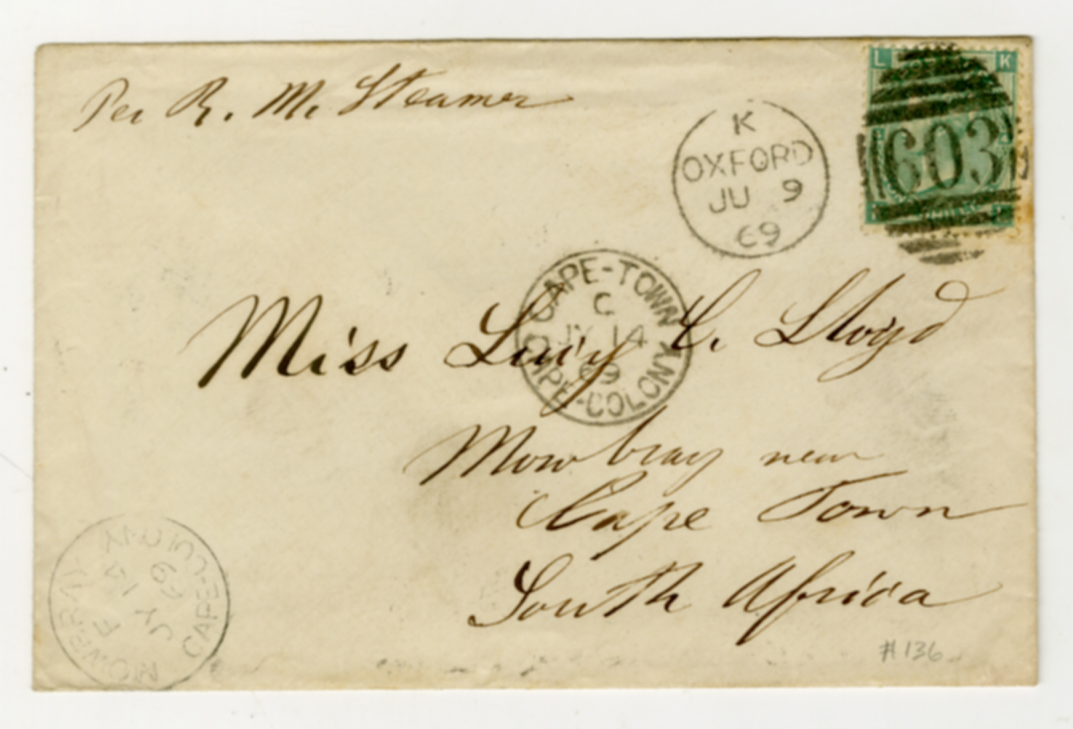 Per R. M. Steamer
L K
603
K
OXFORD
JU 9
69
CAPE-TOWN
C
JY 14
69
CAPE-COLONY
Miss Lucy C. Lloyd
Mowbray near
Cape Town
South Africa
MOWBRAY
F
JY 14
69
CAPE-COLONY
#136